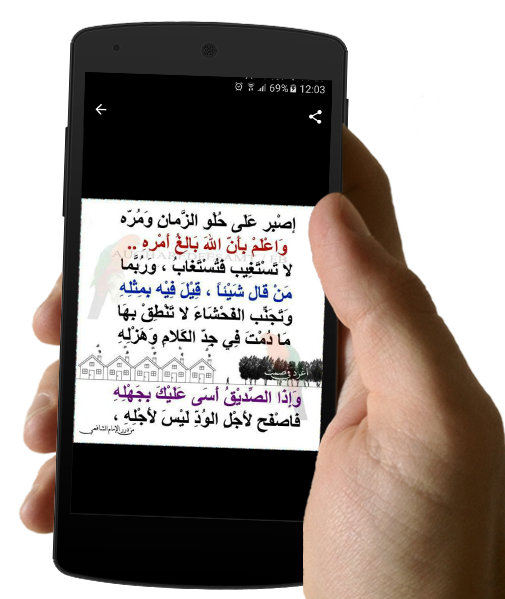 69% 12:03
إصْبر عَلَى حُلْو الزَّمان وَمُرّه
وَاعْلَمْ بأنّ اللهَ بَالِغُ أمْرِهِ ..
لا تَسْتَغِيب فَتُسْتَغابُ ، وَرُبَّما
مَنْ قال شَيْئاً ، قِيْلَ فِيْه بمِثْلِهِ
وَتَجَنَّب الفَحْشَاءَ لا تَنْطِقْ بهَا
مَا دُمْتَ فِي جدّ الكَلامِ وَهَزْلِهِ
أغرد وصمت
وَإذَا الصِّدِيْقُ أسَى عَلَيْكَ بجَهْلِهِ
فَاصْفَح لأجْل الوُدِّ لَيْسَ لأجْلِهِ ،
من درر الإمام الشافعي